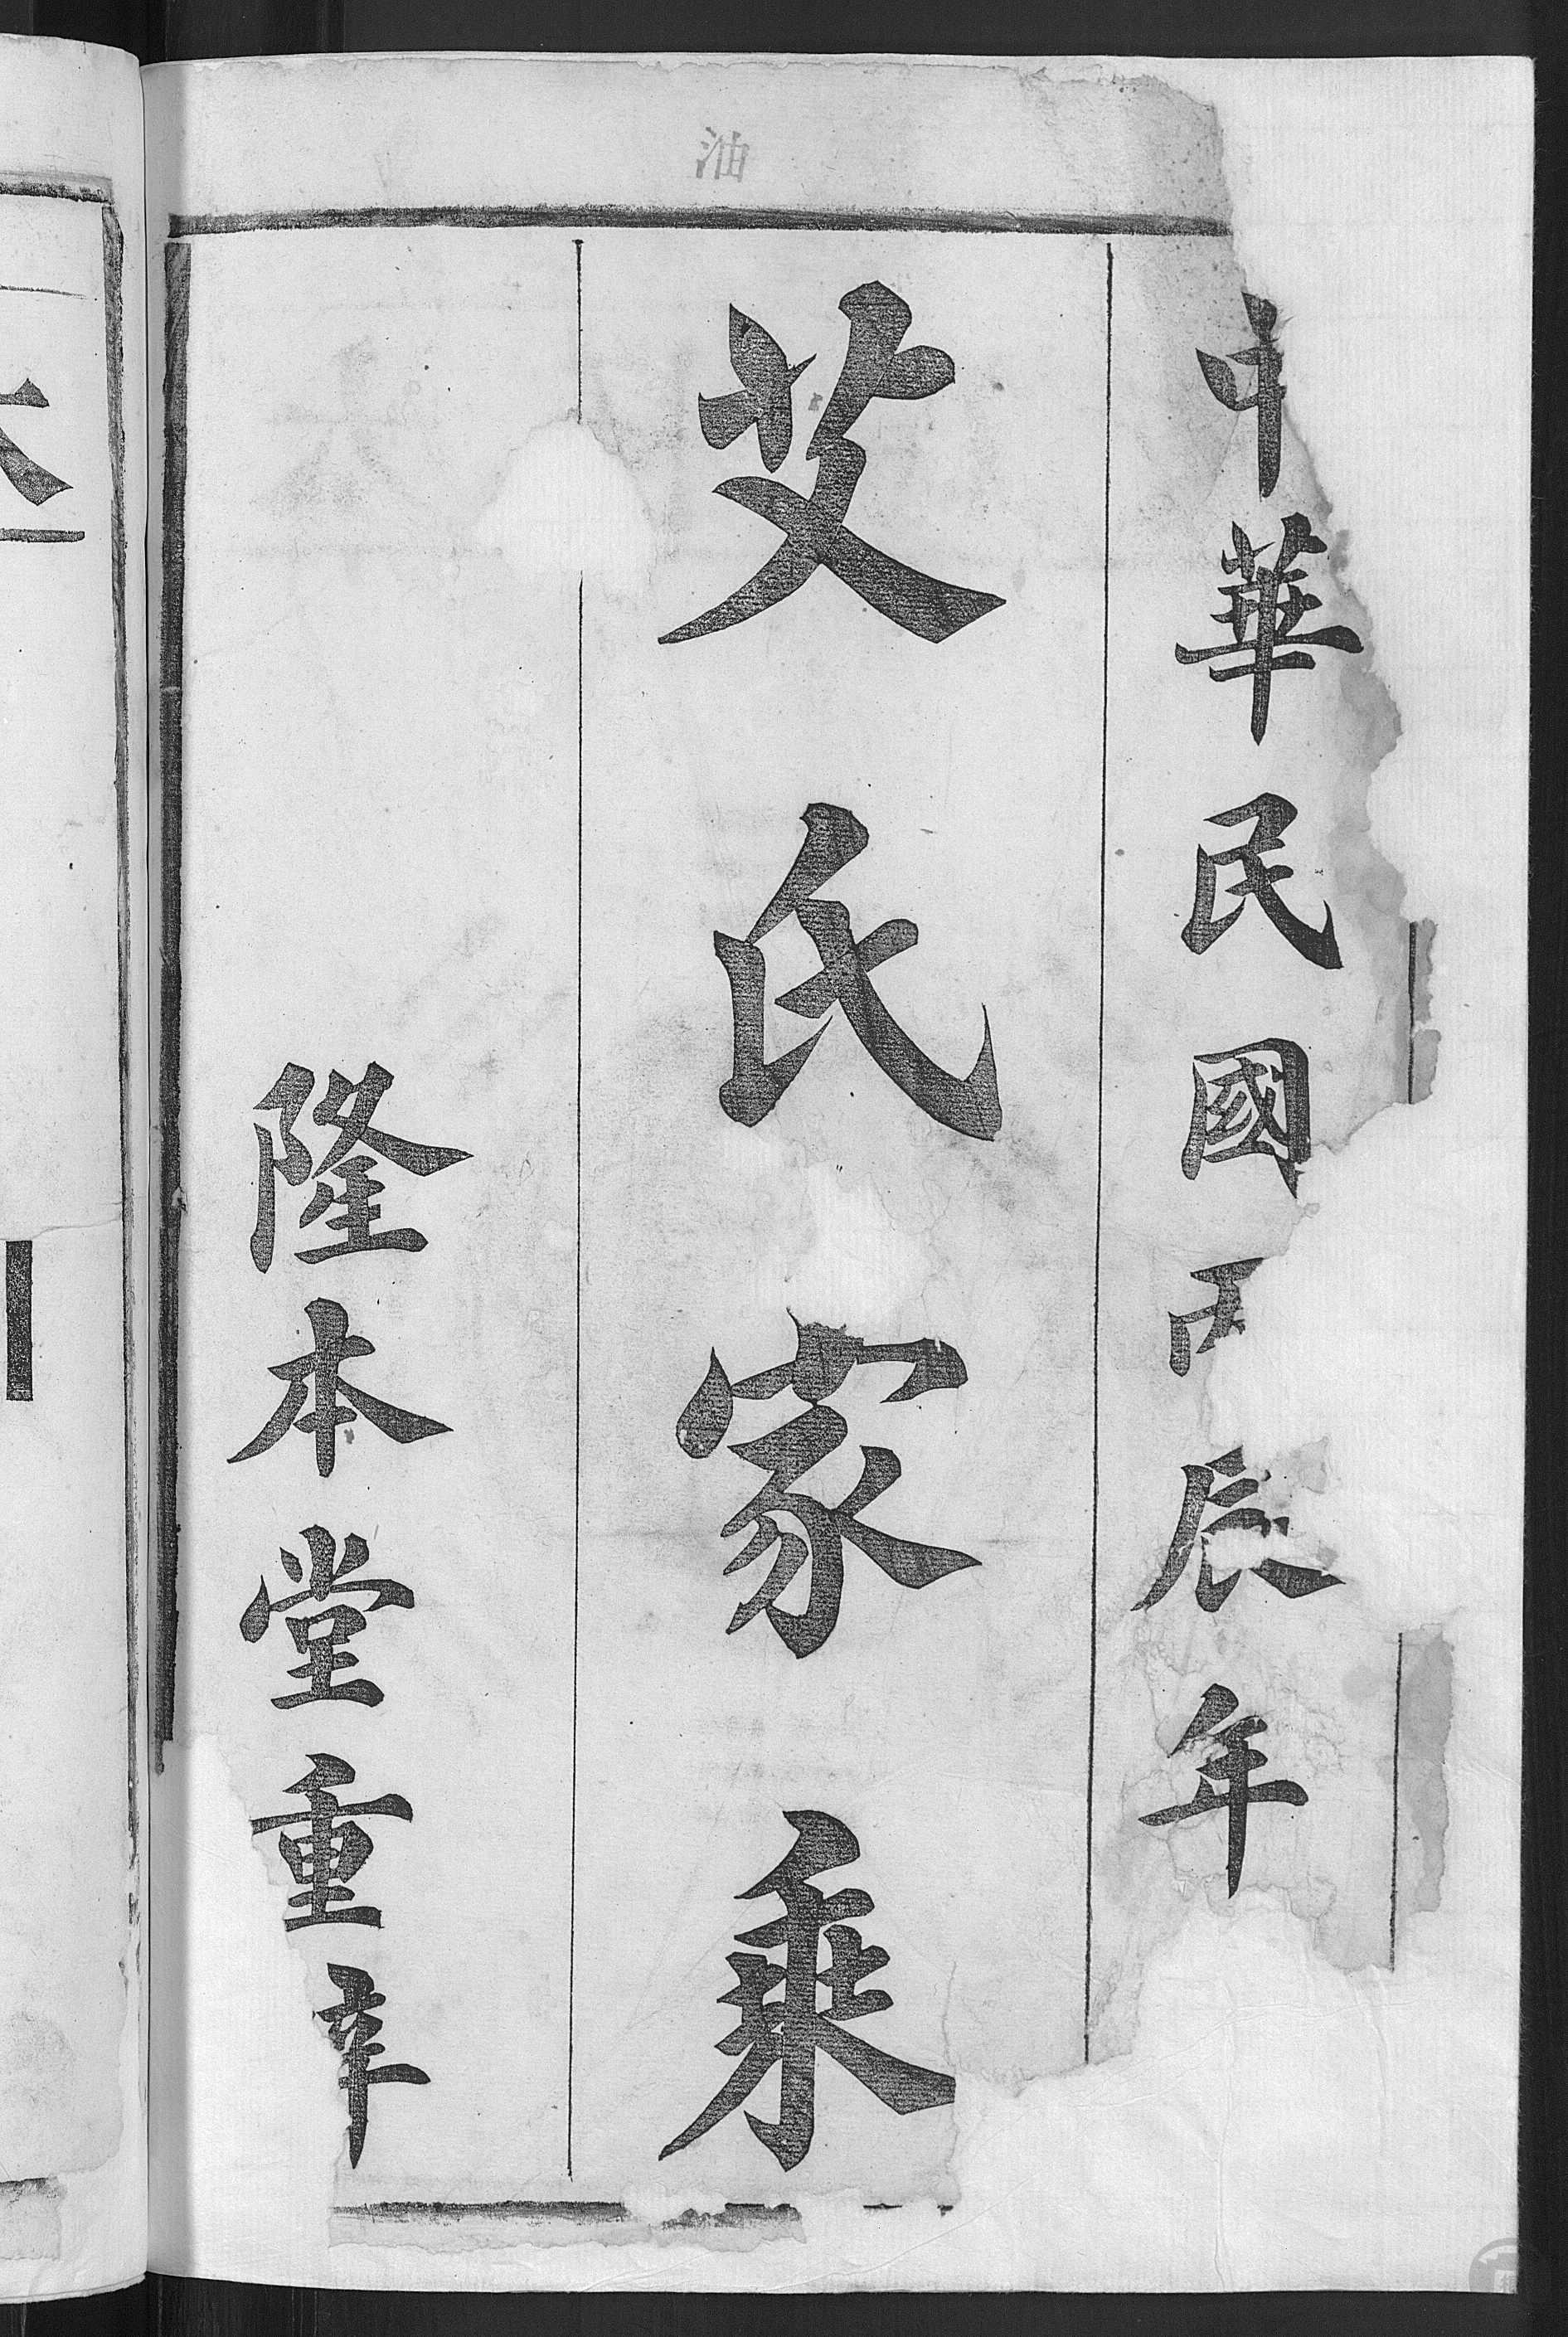 油
中華民國丙辰年
艾氏家乘
隆本堂重梓